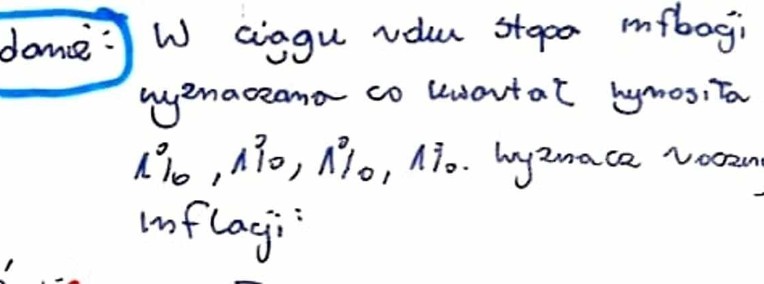 danie: W ciągu roku stopa inflacji
wyznaczana co kwartał wynosiła
1%, 1%, 1%, 1%. Wyznacz roczną
inflacji: